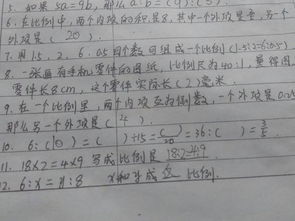 5. 如果5a=9b,那么a:b=(9):(5).
6. 在比例中,两个内项的积是8,其中一个外项是,另一个
外项是(20).
7. 用1.5、2、6.05四个数可组成一个比例(
8. 一张画有手机零件的图纸,比例尺为40:1,量得图
零件长8cm,这个零件实际长(2)毫米.
9. 在一个比例里,两个内项互为倒数,一个外项是0.
那么另一个外项是(4).
10. 6:(10)=( )÷15=( )/20=36:( )=3/5
11. 18×2=4×9 写成比例是 18:2=4:9
12. 6:x=y:8 x和y成 比例.